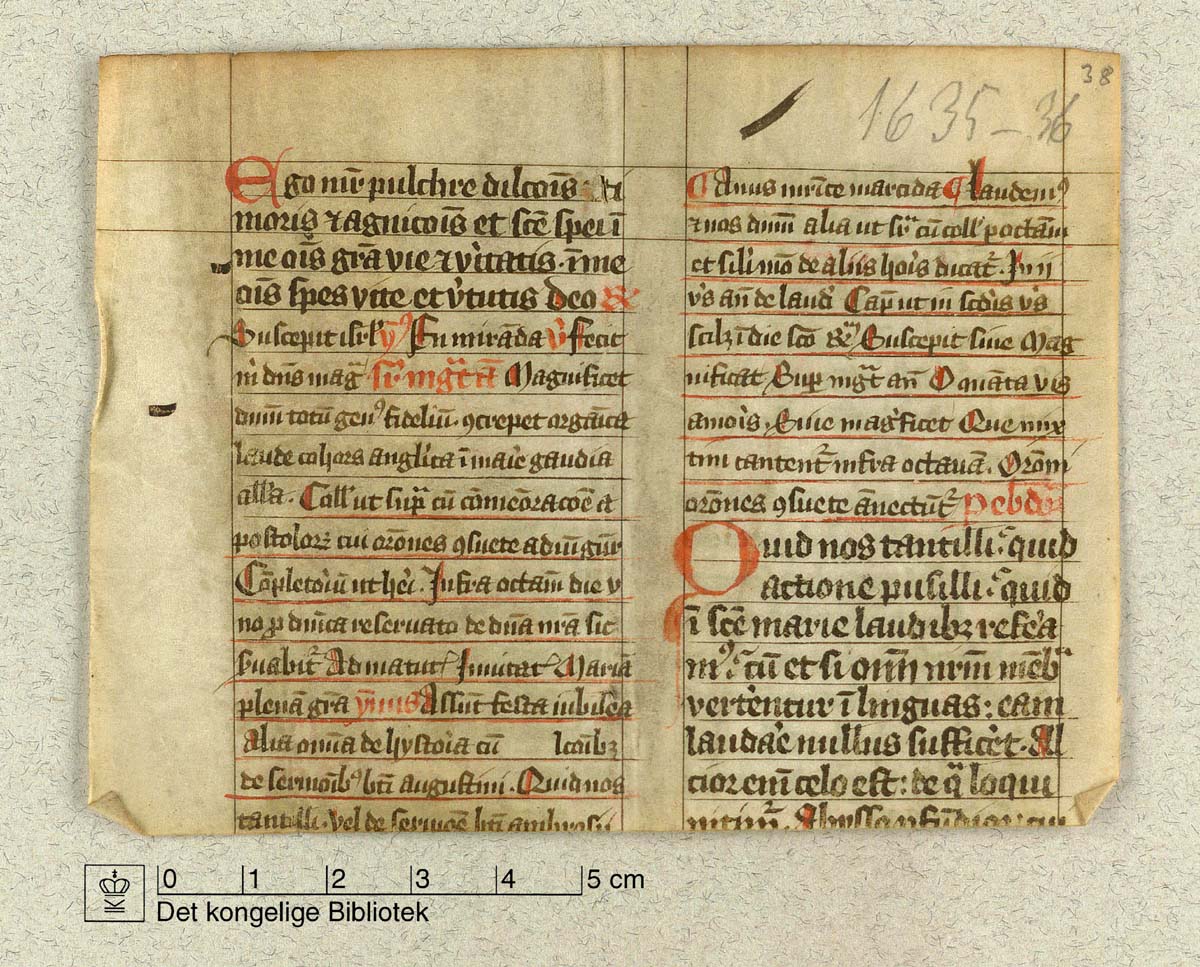 38
1635-36
Ego mr̄ pulchre dilcōis: ti
moris ⁊ agnicōis et sc̄e spei ī
me oīs grā vie ⁊ v̓itatis · ī me
oīs spes vite et v̓tutis deo
Suscepit isrl̓ yꝰ Fu miranda v̓ Fecit
m̓ dn̄s mag̓ sr̄ mḡt an̄ Magnificet
dnm̄ totū genꝰ fideliū · ꝯcrepet organica
laude cohors angl̓ica ī maīe gaudia
all̓a · Coll̓ ut supͣ cū cōmēoracōe a
postoloꝝ cui orōnes ꝯsuete adiūgūr̄
Cōpletoriū ut heri · Infra octam̄ die v
no ꝓ dnīca reseruato de dn̄a nrā sic
s̓uabit̄ Ad matut̓ Inuitat̓ Mariā
plenā grā ymnus Assūt festa iubilea
Alia omīa de hystoria cū lcōibꝫ
de sermōibꝰ bt̄i augustini · Quid nos
tantilli · vel de sermōe bt̄i ambrosii
Canus mēte marcida Claudemꝰ
⁊ nos dnm̄ alia ut sr̄ cū coll̓ ꝑ octam̄
et sil̓i mō de aliis hor̓is dicat̄ · In ii
v̓s an̄ de laud̓ Cap̄ ut in scd̓is v̓s
scilꝫ ī die sc̄o Suscepit siue Mag
nificat Sup̓ mḡt an̄ O quāta vis
amoris · Siue mag̓ficet Que mix
tim cantent̄ infra octauā · Orōm̄
orōnes ꝯsuete ānectūt̄
Quid nos tantilli · quid
actione pusilli · quid
ī sc̄e marie laudibꝫ refera
mꝰ · cū et si om̄ nrm̄ mēbͣ
verterentur ī linguas : eam
laudare nullus sufficeret · Al
cior em̄ celo est : de qͣ loqui
nitim̄ · Abysso ꝓfūdior cui
0 1 2 3 4 5 cm
Det kongelige Bibliotek